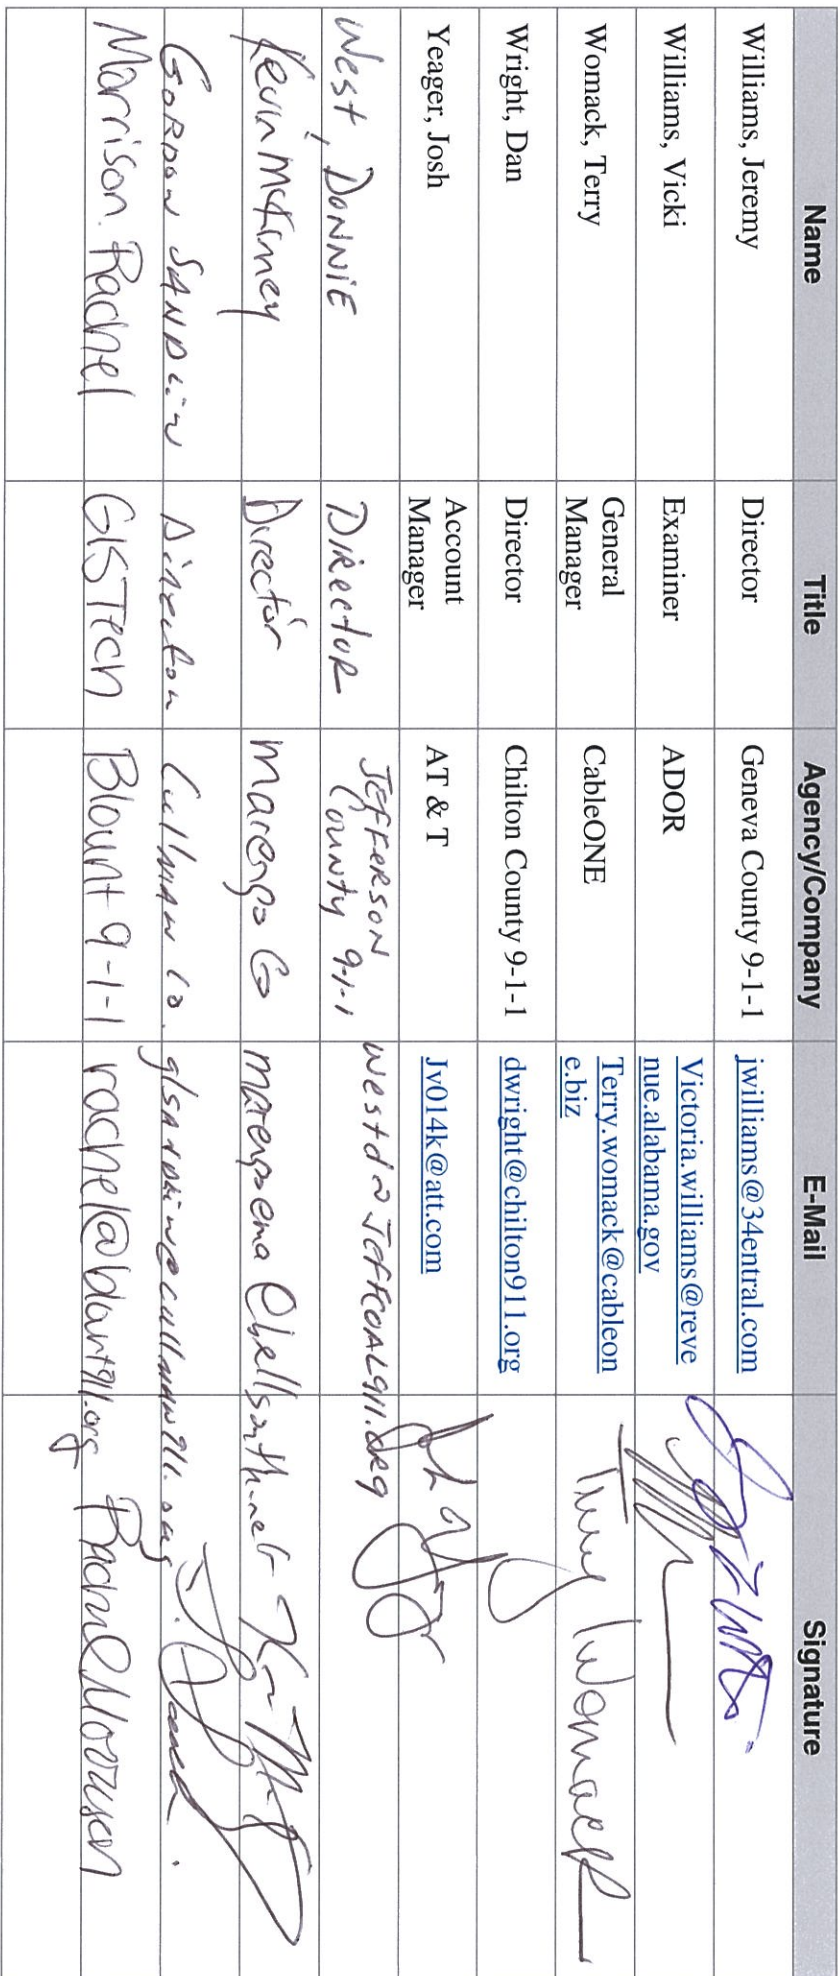 Name Title Agency/Company E-Mail Signature
Williams, Jeremy Director Geneva County 9-1-1 jwilliams@34entral.com
Williams, Vicki Examiner ADOR Victoria.williams@reve
nue.alabama.gov
Womack, Terry General
Manager CableONE Terry.womack@cableon
e.biz Terry Womack
Wright, Dan Director Chilton County 9-1-1 dwright@chilton911.org
Yeager, Josh Account
Manager AT & T Jv014k@att.com
West, DONNIE DIRECTOR JEFFERSON
COUNTY 9-1-1
Kevin McKinney Director Marengo Co marengoema@bellsouth.net
GORDON SANDLIN Director Cullman Co.
Morrison Rachel GIS Tech Blount 9-1-1 rachel@blount911.org Rachel Morrison